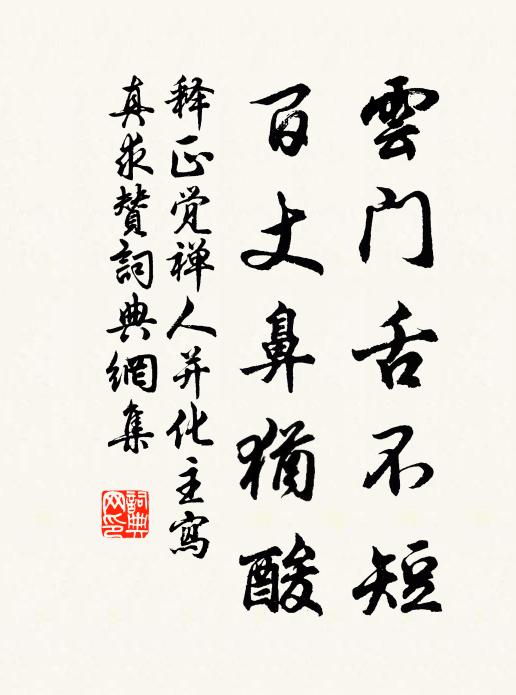 雲门舌不短
百丈鼻犹酸
释正觉禅人并化主寫
真求赞詞典網集
詞典网印